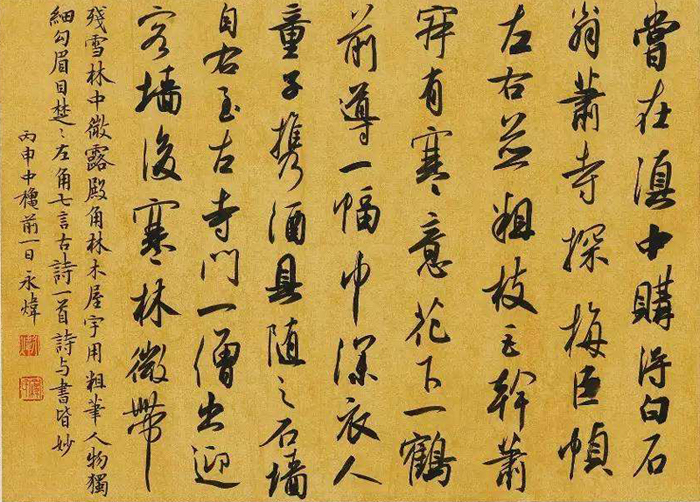 嘗在滇中購得白石
翁蕭寺探梅巨幀
左右並粗枝巨幹蕭
寂有寒意花下一鶴
前導一幅巾深衣人
童子携酒具随之石墙
自右至古寺門一僧出迎
客墙後寒林微帶
殘雪林中微露殿角林木屋宇用粗筆人物獨
細勾眉目楚〻左角七言古詩一首詩与書皆妙
丙申中穐前一日永煒